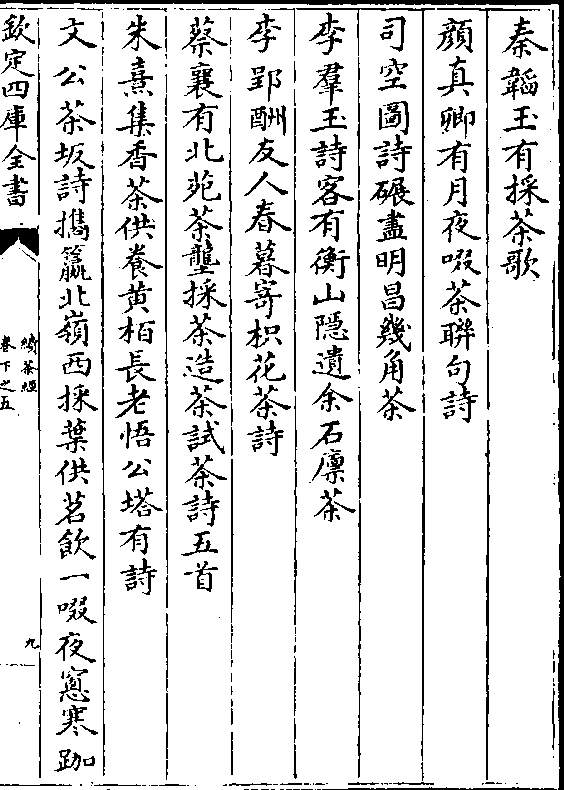 秦韜玉有採茶歌
顔真卿有月夜啜茶聯句詩
司空圖詩碾盡明昌幾角茶
李羣玉詩客有衡山隱遺余石廩茶
李郢酬友人春暮寄枳花茶詩
蔡襄有北苑茶壟採茶造茶試茶詩五首
朱熹集香茶供養黄栢長老悟公塔有詩
文公茶坂詩攜籯北嶺西採葉供茗飲一啜夜窻寒跏
欽定四庫全書
續茶經
卷下之五
九